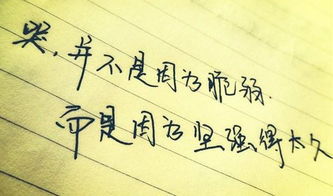 哭，并不是因为脆弱．
而是因为坚强得太久